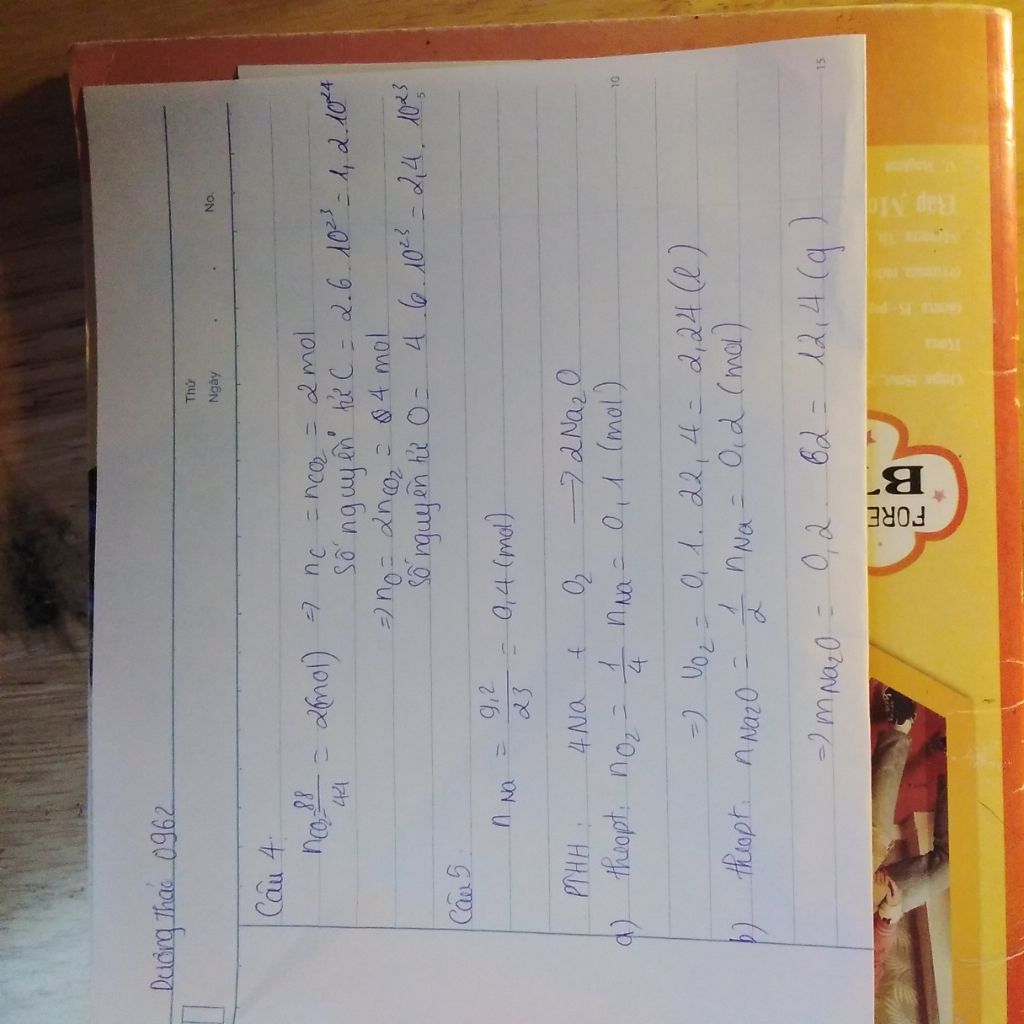 Dương Thảo 0962
Thứ
Ngày
No.
Câu 4.
nCO2 = 88/44 = 2(mol) => nC = nCO2 = 2 mol
Số nguyên tử C = 2.6.10^23 = 1,2.10^24
=> nO = 2nCO2 = 4 mol
Số nguyên tử O = 4.6.10^23 = 2,4.10^23
5
Câu 5.
nNa = 9,2/23 = 0,4 (mol)
PTHH: 4Na + O2 → 2Na2O
a) theopt: nO2 = 1/4 nNa = 0,1 (mol)
10
=> VO2 = 0,1.22,4 = 2,24 (l)
b) theopt. nNa2O = 1/2 nNa = 0,2 (mol)
=> mNa2O = 0,2.62 = 12,4 (g)
15
FORE